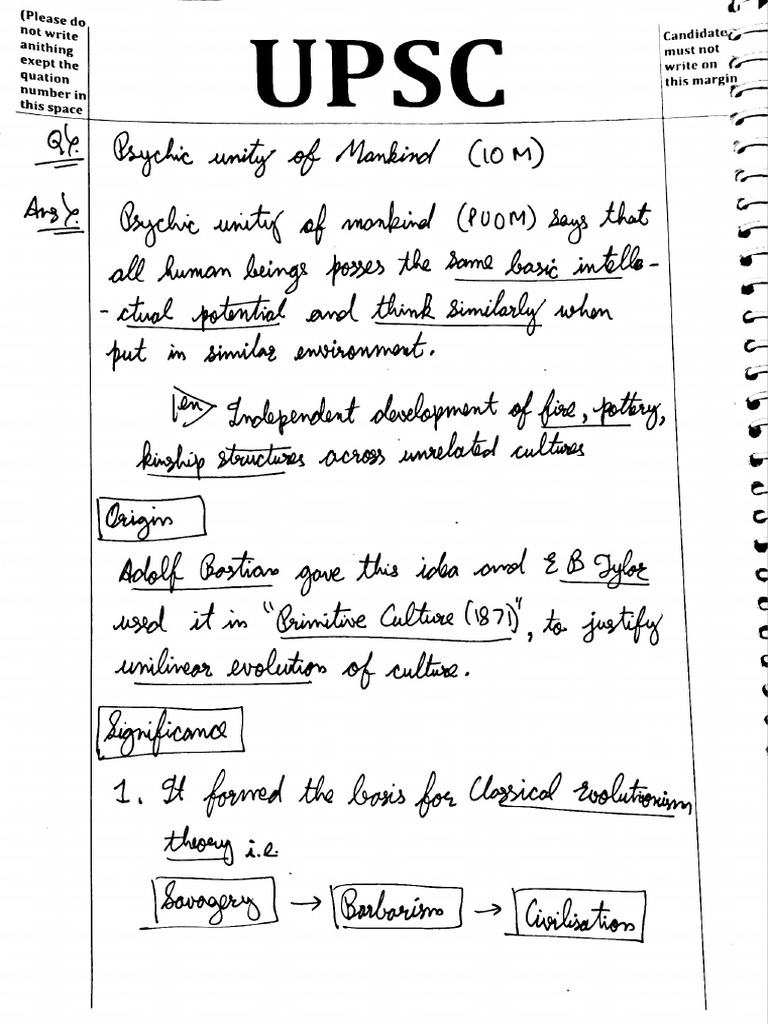 (Please do
not write
anithing
exept the
quation
number in
this space
UPSC
Candidate
must not
write on
this margin
Q1. Psychic unity of Mankind (10 M)
Ans1. Psychic unity of mankind (PUOM) says that
all human beings posses the same basic intelle-
-ctual potential and think similarly when
put in similar environment.
en> Independent development of fire, pottery,
kinship structures across unrelated cultures
Origin
Adolf Bastian gave this idea and E B Tylor
used it in "Primitive Culture (1871)", to justify
unilinear evolution of culture.
Significance
1. It formed the basis for Classical evolutionism
theory i.e.
Savagery → Barbarism → Civilisation